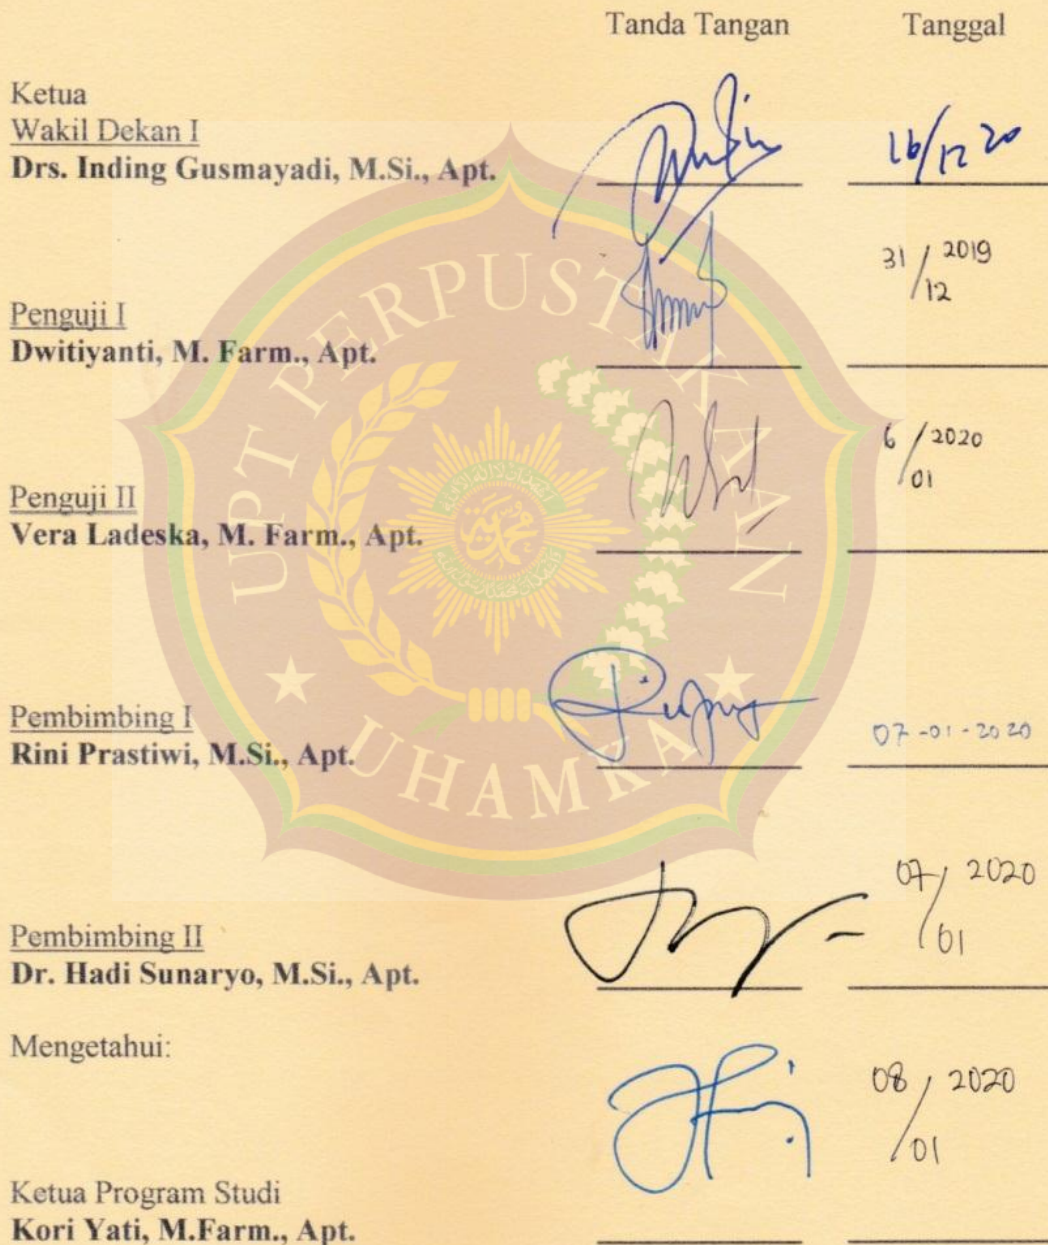 Tanda Tangan Tanggal
Ketua
Wakil Dekan I
Drs. Inding Gusmayadi, M.Si., Apt. 16/12 20
31/12 2019
Penguji I
Dwitiyanti, M. Farm., Apt.
6/01 2020
Penguji II
Vera Ladeska, M. Farm., Apt.
Pembimbing I
Rini Prastiwi, M.Si., Apt. 07-01-2020
07/01 2020
Pembimbing II
Dr. Hadi Sunaryo, M.Si., Apt.
Mengetahui:
08/01 2020
Ketua Program Studi
Kori Yati, M.Farm., Apt.
UPT PERPUSTAKAAN
UHAMKA
محمد